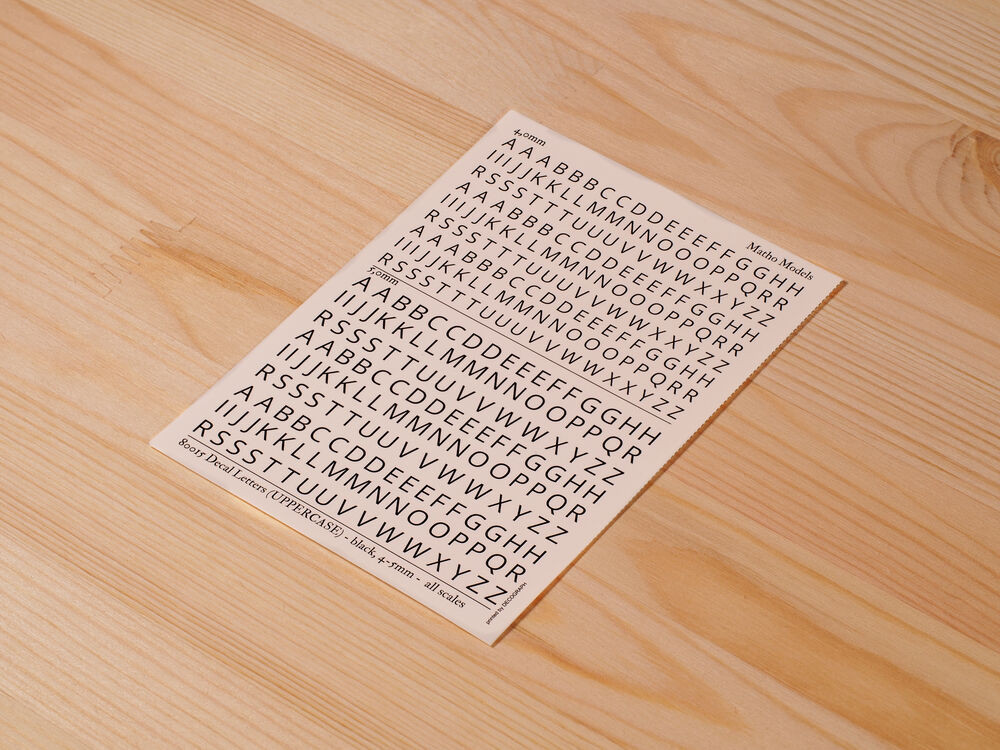 4,0mm
Matho Models
AAABBBCCDDEEEFFGGHH
IIIJJKKLLMMNNOOOPPQRR
RSSSTTTUUUVVWWXXYZZ
AAABBBCCDDEEEFFGGHH
IIIJJKKLLMMNNOOOPPQRR
RSSSTTTUUUVVWWXXYZZ
AAABBBCCDDEEEFFGGHH
IIIJJKKLLMMNNOOOPPQRR
RSSSTTTUUUVVWWXXYZZ
5,0mm
AABBCCDDEEEFFGGHH
IIIJJKKLLMMNNOOPPQR
RSSSTTUUVVWWXYZZ
AABBCCDDEEEFFGGHH
IIIJJKKLLMMNNOOPPQR
RSSSTTUUVVWWXYZZ
AABBCCDDEEEFFGGHH
IIIJJKKLLMMNNOOPPQR
RSSSTTUUVVWWXYZZ
80015 Decal Letters (UPPERCASE) - black, 4-5mm - all scales
printed by DECOGRAPH